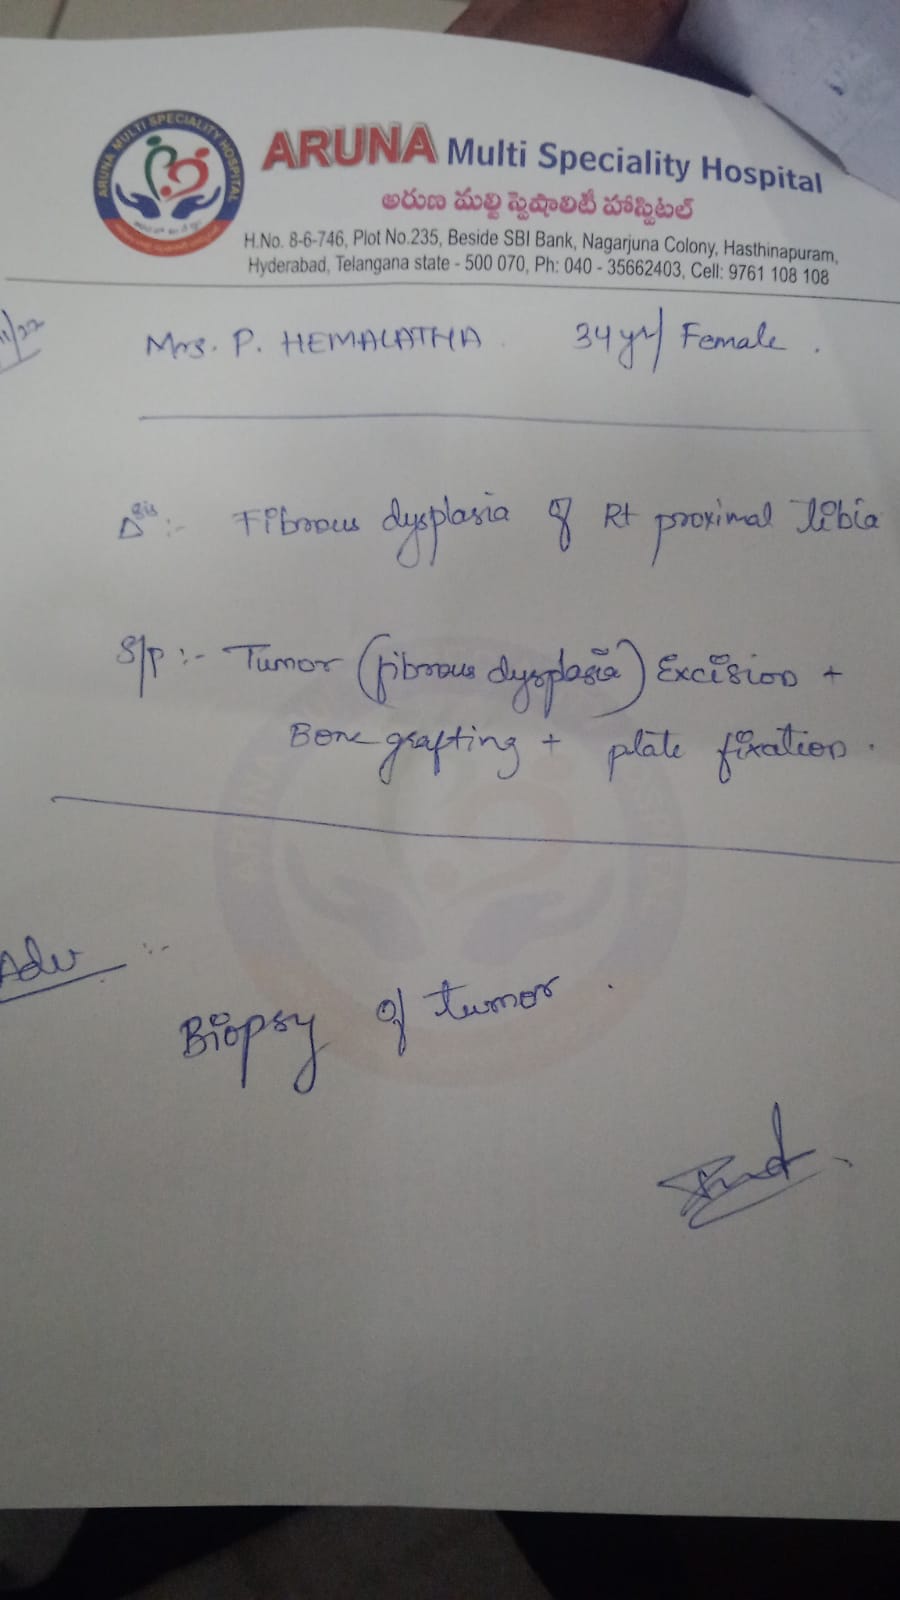 ARUNA MULTI SPECIALITY HOSPITAL
ARUNA Multi Speciality Hospital
అరుణ మల్టి స్పెషాలిటీ హాస్పిటల్
H.No. 8-6-746, Plot No.235, Beside SBI Bank, Nagarjuna Colony, Hasthinapuram,
Hyderabad, Telangana state - 500 070, Ph: 040 - 35662403, Cell: 9761 108 108
/22
Mrs. P. HEMALATHA. 34yr/ Female.
Δsis :- Fibrous dysplasia of Rt proximal Tibia
S/P :- Tumor (fibrous dysplasia) Excision +
Bone grafting + plate fixation.
Adv :-
Biopsy of tumor.